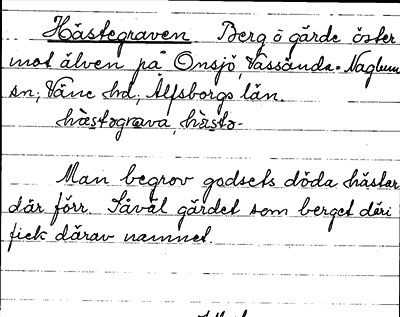 Hästegraven Berg o gärde öster
mot älven på Onsjö, Vassända-Naglum
sn; Väne hd; Älfsborgs län.
hästəgrava, hästə-
Man begrov godsets döda hästar
där förr. Såväl gärdet som berget däri
fick därav namnet.